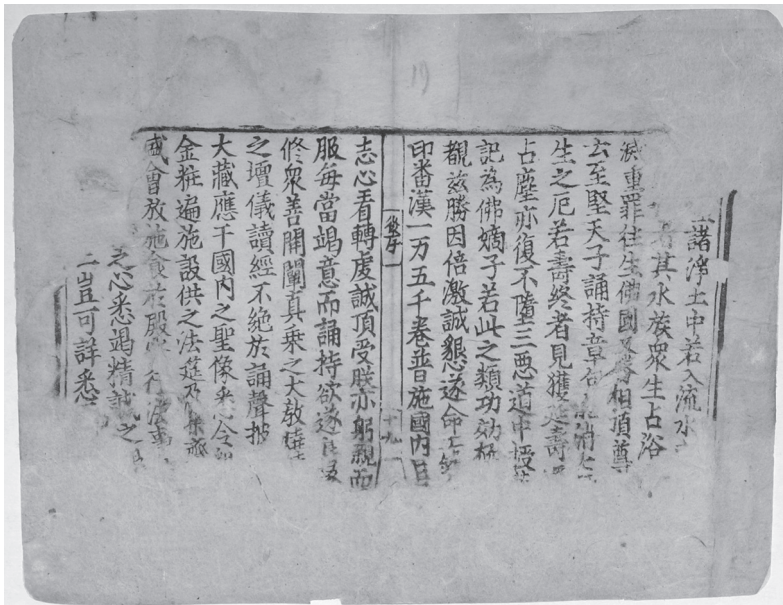 諸淨土中若入流水
其水族衆生占浴
滅重罪往生佛國又尊相頂尊
玄至堅天子誦持章句消
生之厄若壽終者見獲延壽
占塵亦復不墮三悪道中授菩
記為佛嫡子若此之類功効極
覩兹勝因倍激誠懇遂命工
印番漢一万五千卷普施國内臣
後序
十九
志心看轉虔誠頂受朕亦躬親而
服每當竭意而誦持欲遂良緣
修衆善開闡真乗之大教燒
之壇儀讀經不絶於誦聲披
大藏應干國内之聖像悉令
金粧遍施設供之法筵及集齋
盛會放施食於殿宇行法事
之心悉竭精誠之
二豈可詳悉